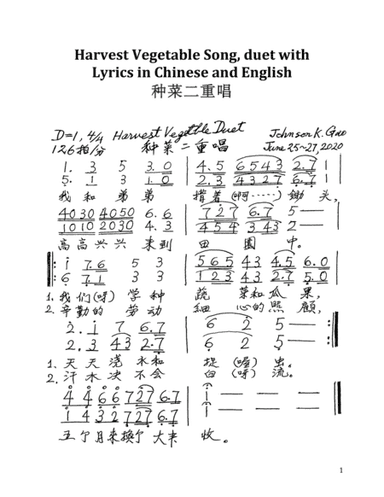 Harvest Vegetable Song, duet with
Lyrics in Chinese and English
种菜二重唱
D=1, 4/4 Harvest Vegetble Duet Johnson K. Gao
126拍/分 种菜二重唱 June 25-27, 2020
1. 3 5 3.0 4.5 6543 2.7 1
5. 1 3 1.0 2.3 4327 6.7 1
我 和 弟弟 撑着(啊······)锄头,
4030 4050 6.6 727 6.7 5 —
1010 2030 4.3 454 343 2 —
高高兴兴 来到 田 園 中。
i 7.6 5 3 565 43 4.5 6.0
6 7.1 3 3 123 43 2.7 5.0
1. 我们(呀)学种 蔬 菜和瓜果,
2. 辛勤的 劳动 細 心的照顧,
2. i 7 6.7 6 2 5 — —
2. 3 43 2.7 6 2 5 — —
1. 天天浇水和 出。
2. 汗水决不会 白(呀)流。
4 4 6 6 7 27 6.7 i — — —
1 4 3 2 7 27 6.7 1 — — —
五个月来换个大丰 收。
1